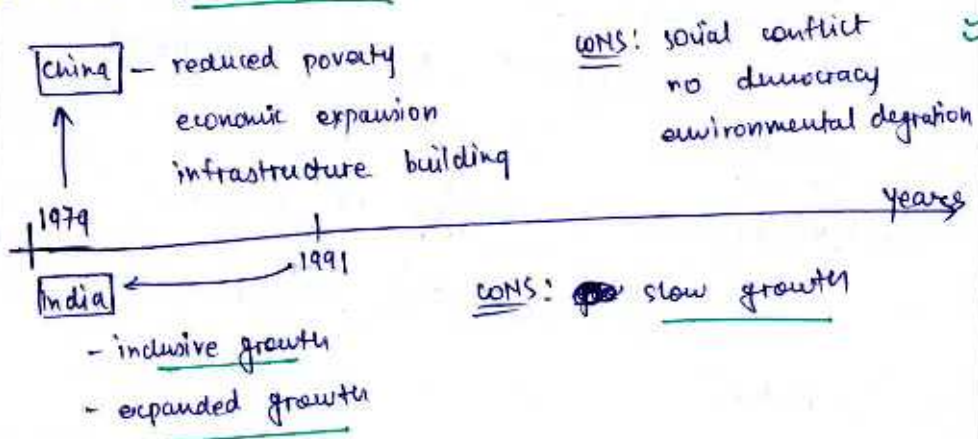 China - reduced poverty
economic expansion
infrastructure building
CONS: social conflict
no democracy
environmental degration
1979
1991
Years
India
- inclusive growth
- expanded growth
CONS: slow growth